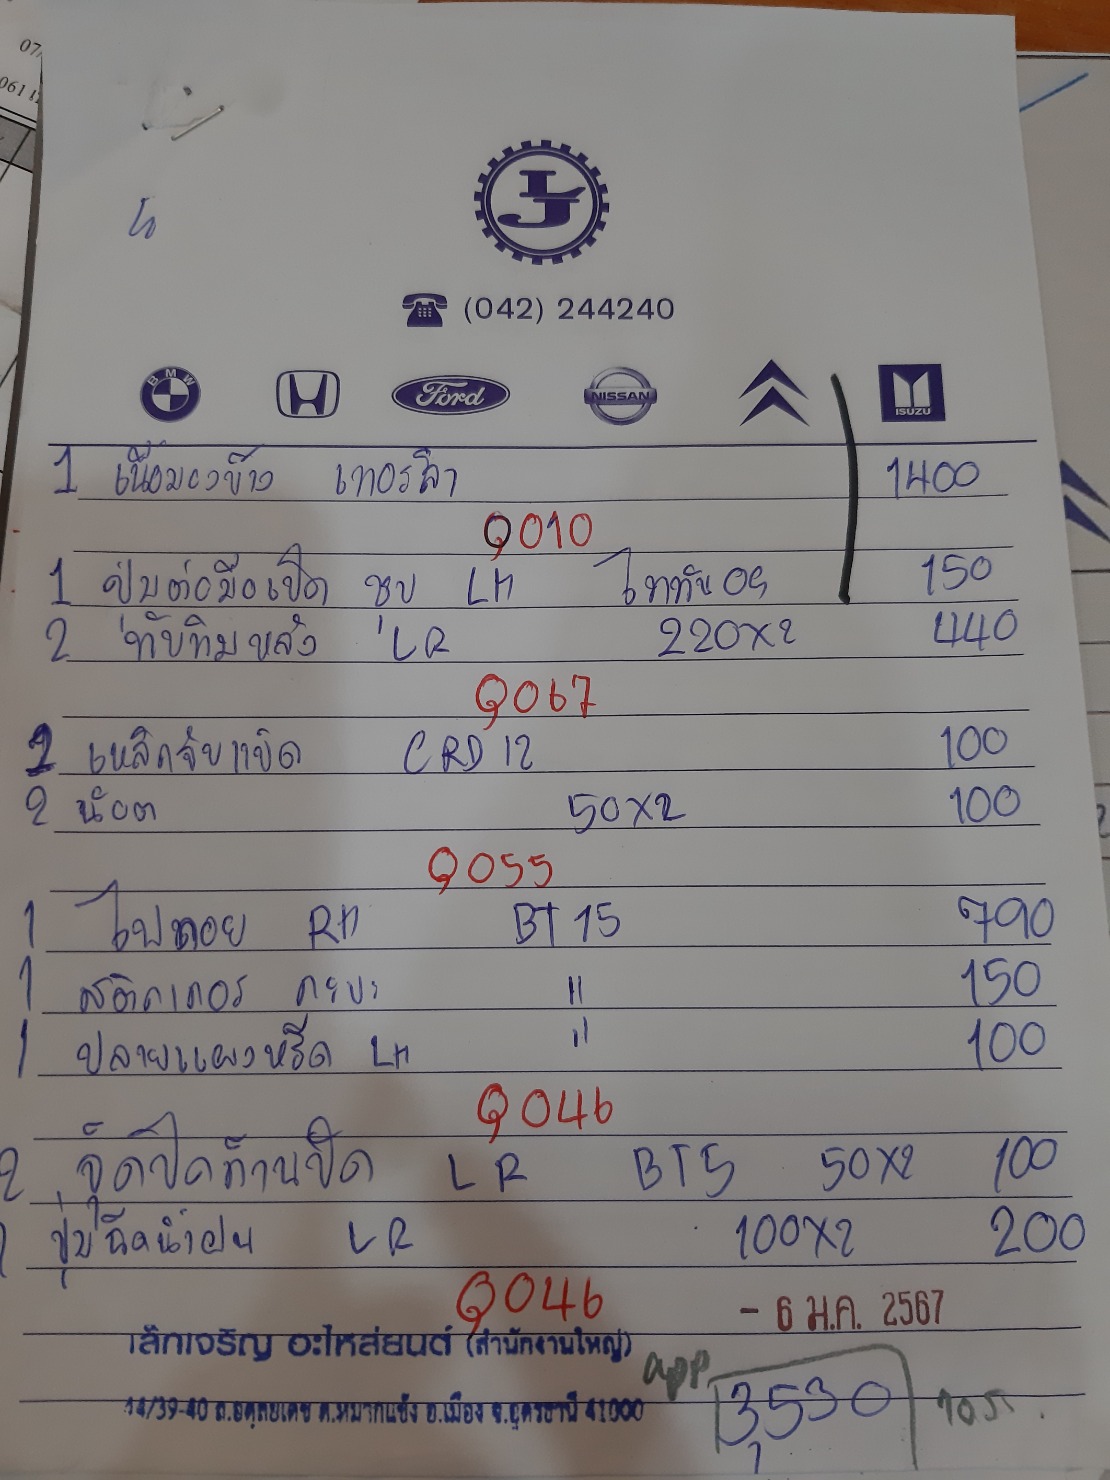 LJ
(042) 244240
BMW Ford NISSAN ISUZU
1 เนื้อมองข้าง เทอร์ล่า 1400
Q010
1 ปุ่มต่อมือเปิด ชุบ LH ไททัน 150
2 ทับทิมหลัง LR 220x2 440
Q067
เหล็กจับแข็ด CRD 12 100
2 น๊อต 50x2 100
Q055
1 ไฟถอย RH BT 15 790
1 สติกเกอร์ กะบะ " 150
1 ปลายแผงหรีด LH " 100
Q046
2 จุ๊ดปิดก้านปัด LR BT5 50x2 100
ปุ่มฉีดน้ำฝน LR 100x2 200
Q046
- 6 ม.ค. 2567
เล็กเจริญ อะไหล่ยนต์ (สำนักงานใหญ่)
app
14/39-40 ถ.อดุลยเดช ต.หมากแข้ง อ.เมือง จ.อุดรธานี 41000
3,530